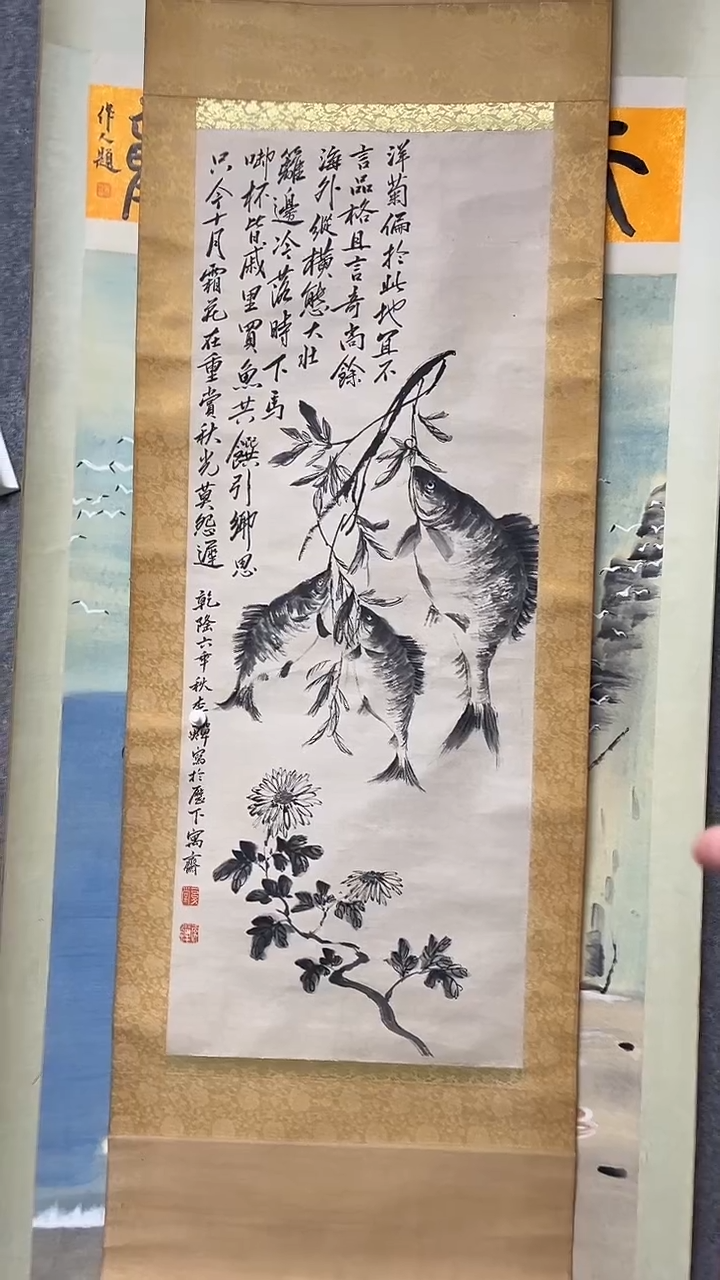 洋菊偏於此地宜不
言品格且言奇尚餘
海外縱橫態大壯
籬邊冷落時下馬
啣杯皆戚里買魚共饌引鄉思
只今十月霜花在重賞秋光莫怨遲
乾隆六年秋寫於歷下寓齋
作人題